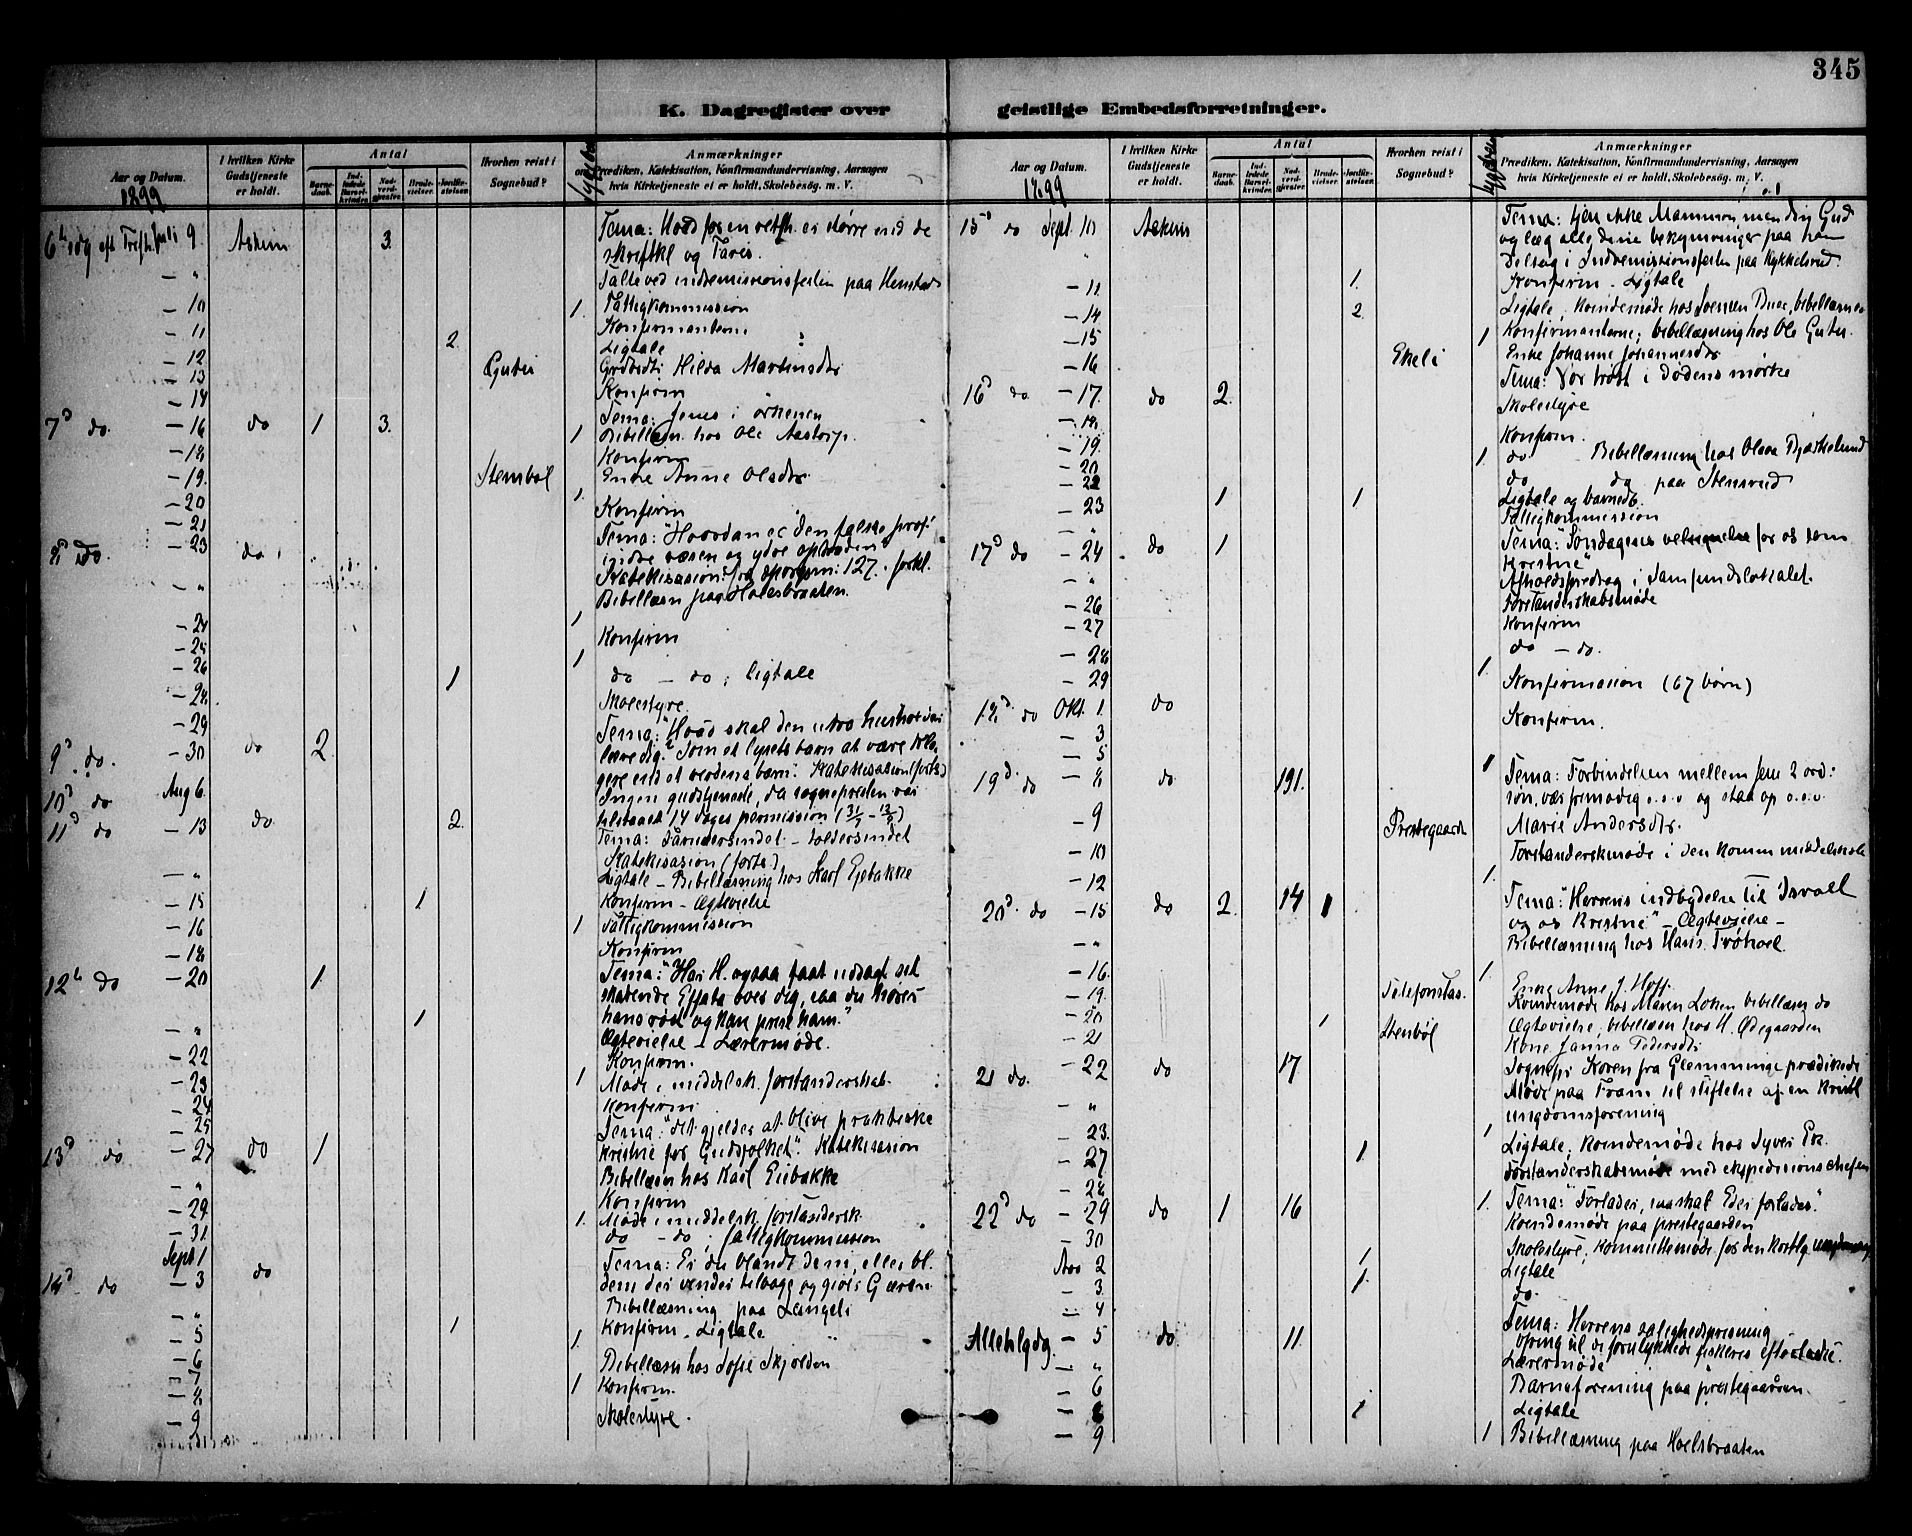 345
K. Dagregister over geistlige Embedsforretninger.
Aar og Datum.
1899
I hvilken Kirke Gudstjeneste er holdt.
Antal
Barnedaab.
Indledede Barselkvinder.
Nadverdgjester.
Brudevielser.
Jordfæstelser.
Hvorhen reist i Sognebud?
Anmærkninger
Prædiken, Katekisation, Konfirmandundervisning, Aarsagen
hvis Kirketjeneste ei er holdt, Skolebesøg. m. V.
6 sdg eft Trefh. Juli 9 Askim 3 Tema: er større end de
skriftkl og Faris.
- " Talte ved indremissionsfesten paa
- 10 1. Fattigkommission
- 11 Konfirmanterne
- 12 2. Ligtale
- 13 Guter Hilda Martinsdtr
- 14 Konfirm
7d do. - 16 do 1 3. Tema: Jesus i ørkenen
- 18 1 Bibellæsn. hos Ole Aastorp.
- 19. Konfirm
- 20 Stenbøl Enke Anne Olsdtr
- 21 1. Konfirm
8d do. - 23 do Tema: "Hvordan er den falske prof i
indre væsen og ydre optræden"
Katekisasion: fra spørgsm: 127. forkl.
- " Bibellæsn paa Holesbraaten.
- 24 1
- 25 Konfirm
- 26 1
- 28. 1 do - do; ligtale
- 29 Skolestyre
9d do. - 30 do 2 Tema: "Hvad skal den utro husholder
lære dig." Som et lysets barn at være klo-
gere end et verdens barn. Katekisasion (forts)
10d do Aug 6. Ingen gudstjeneste, da sognepresten var
tilstaaet 14 dages permission (31/7 - 13/8)
11d do - 13 do 2. Tema: Faariersindet - toldersindet
Katekisasion (forts)
- " Ligtale - Bibellæsning hos Karl Ejebakke
- 15 1 Konfirm - Ægtevielse
- 16 1 Fattigkommission
- 18 Konfirm
12t do - 20 1. Tema: "Har H. ogsaa faat udsagt sit
skabende Effata over dig, saa du hører
hans røst og kan prise ham."
- " 1 Ægtevielse - Lærermøde.
- 22 Konfirm.
- 23 1 Møde i middelsk. forstanderskab.
- 24 Konfirm
- 25 Tema: "det gjelder at blive praktiske
13d do - 27 do 1 kristne for Gudsfolket". Katekisasion
- " Bibellæsn hos Karl Eiebakke
- 29 Konfirm
- 31 1. Møde i middelsk. forstandersk.
Sept 1 do - do; fattigkommission
14d do - 3 do Tema: Er du blandt dem, eller bl.
dem der vender tilbage og giver G æren.
- " Bibellæsning paa Langeli
- 5 1 Konfirm - Ligtale
- 6 1.
- 7 Bibellæsn hos Sofie Skjolden
- 8 1 Konfirm.
- 9 Skolestyre.
Aar og Datum.
1899
I hvilken Kirke Gudstjeneste er holdt.
Antal
Barnedaab.
Indledede Barselkvinder.
Nadverdgjester.
Brudevielser.
Jordfæstelser.
Hvorhen reist i Sognebud?
Anmærkninger
Prædiken, Katekisation, Konfirmandundervisning, Aarsagen
hvis Kirketjeneste ei er holdt, Skolebesøg. m. V.
15d do Sept. 10 Askim Tema: tjen ikke Mammon, men din Gud
og læg alle dine bekymringer paa ham
" Deltag i Indremissionsfesten paa Kykkelsrud.
- 11. 1. Konfirm - Ligtale
- 14 2 Ligtale, Kvindemøde hos bibellæsn
- 15 1 Konfirmanterne; bibellæsning hos Ole Guter.
- 16 Ekeli Enke Johanne Johannesdtr
16d do - 17 do 2. Tema: Vor trøst i Dødens mørke
- 18 Skolestyre
- 19. Konfirm.
- 20 1. do Bibellæsning hos Olava
- 22 do do paa Stensrud
- 23 1 1 Ligtale og barnedb.
- " Fattigkommission
17d do - 24 do 1 Tema: "Søndagens velsignelse for os som
kristne"
- " Afholdsforedrag i Samfundslokalet.
- 26 Forstanderskabsmøde
- 27 Konfirm
- 28 do - do.
- 29 1.
18d do Okt. 1. do Konfirmasion (67 børn)
- 3 Konfirm.
- 5 1
19d do - 8 do 191. Tema: Forbindelsen mellem Jesu 2 ord:
søn, vær frimodig o.s.v og staa op o.s.v.
- 9 Prestegaarde Marie Andersdtr.
- 10 Forstanderskmøde i den komm middelskole
- 12 1.
20d do - 15 do 2 14 1 Tema: "Herrens indbydelse til Israel
og os kristne" - Ægtevielse -
- " Bibellæsning hos Hans Trøhoel
- 16. 1.
- 19. Telefonstas. Enke Anne J. Hoff.
- 20 Kvindemøde hos Maren Loken bibellæsn do
- 21 1 Stenbøl Ægtevielse, bibellæsn hos H. Ødegaarden
Kone Janna Pedersdtr
21 do. - 22 do 17 Sognepr Koren fra Glemminge prædikede
- " Møde paa Fram til stiftelse af en kristl
ungdomsforening
- 23. 1
- 27 1. Ligtale, kvindemøde hos Syver Ek.
- 28 Forstanderskabsmøde med ekspedisionschefen
22d do - 29 do 1 16 1. Tema: "Forlader, saa skal Eder forlades".
- 30 Kvindemøde paa prestegaarden
Nov 2 1 Skolestyre, Kommittemøde for den kristlg
- 3. 1. Ligtale
- 4 do
Allehelgdg. - 5 do 11. Tema: Herrens salighedsprisning
ofring til de forulykkede fiskeres efterladte.
- " Lærermøde
- 6 Barneforening paa prestegaarden.
- 8 1 Ligtale
- 9 1 Bibellæsning paa Hoelsbraaten